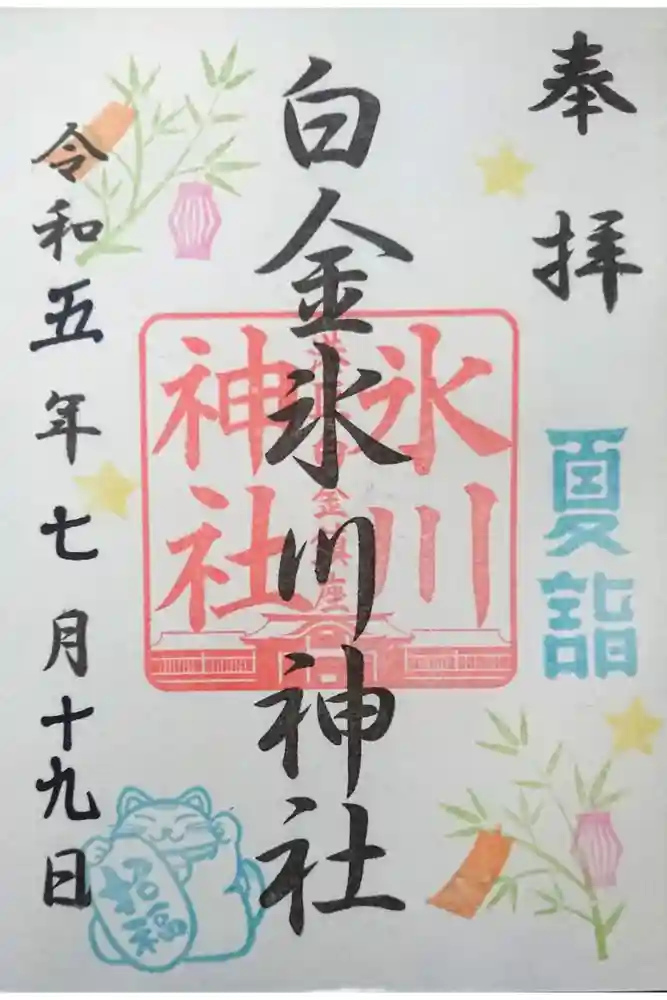 奉拝
夏詣
白金氷川神社
氷川
神社
金鎮座
令和五年七月十九日
招福